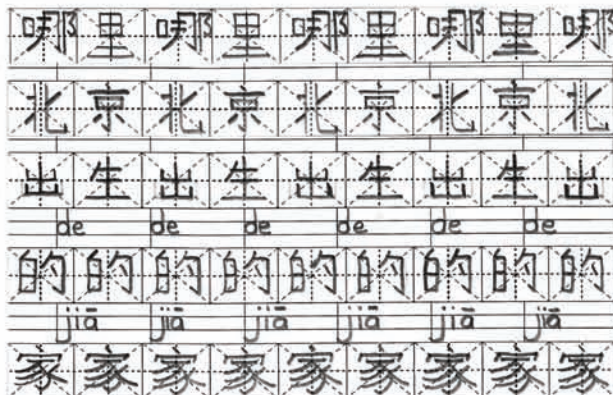 哪里哪里哪里哪里哪
北京北京北京北京北
出生出生出生出生出
de de de de de de
的的的的的的的的的
jiā jiā jiā jiā jiā jiā
家家家家家家家家家